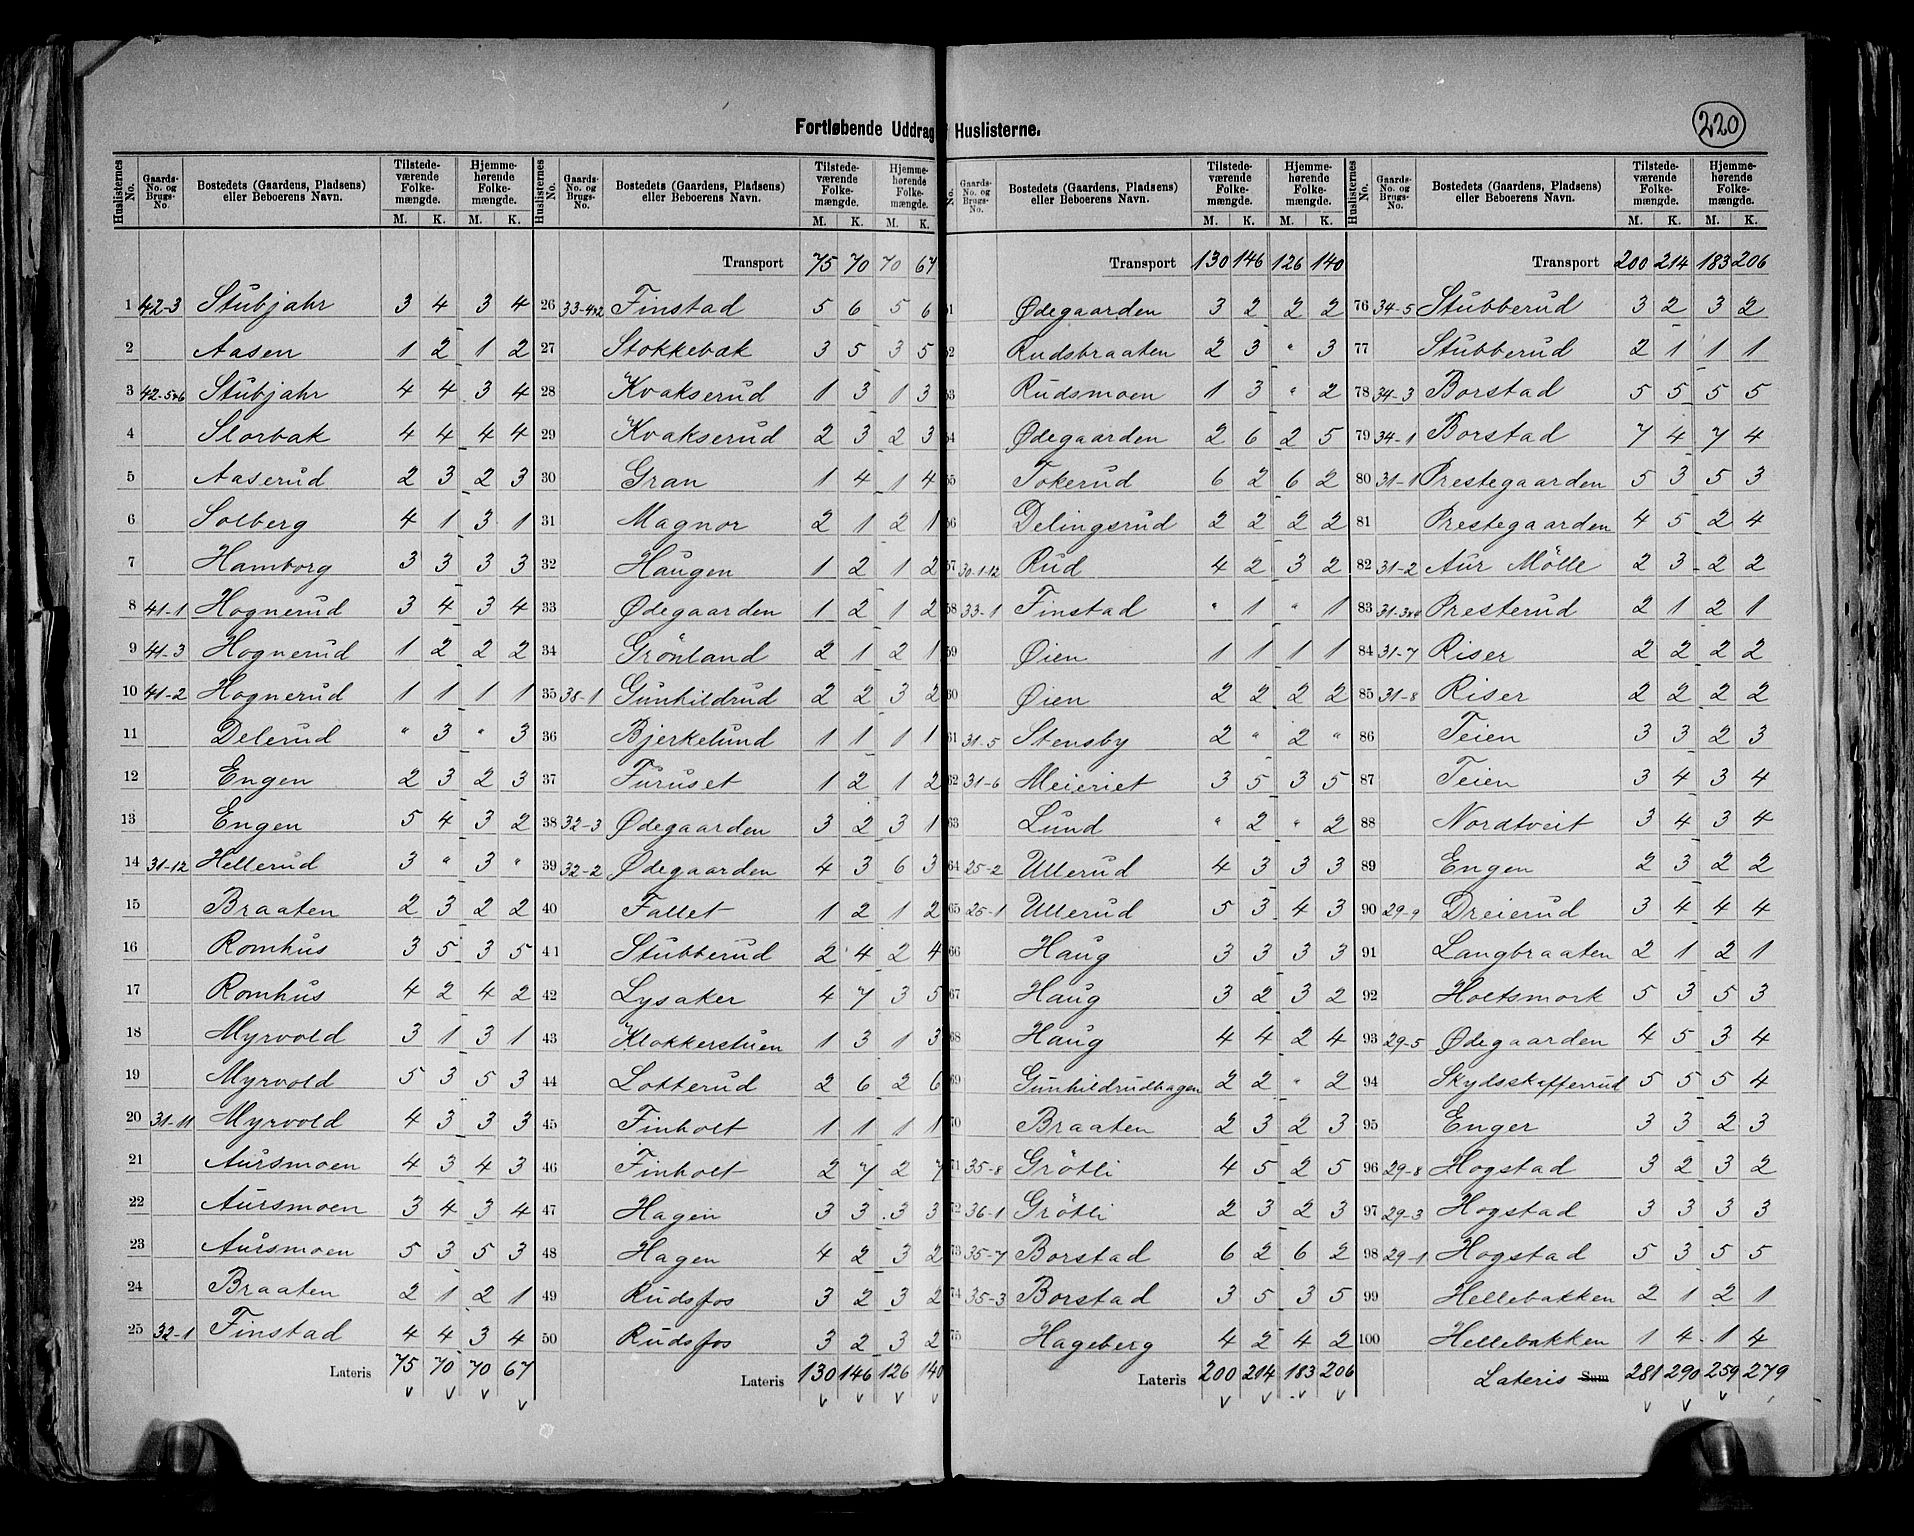 220
Fortløbende Uddrag Huslisterne.
Huslisternes No. | Gaards- No. og Brugs- No. | Bostedets (Gaardens, Pladsens) eller Beboerens Navn. | Tilstede- værende Folke- mængde. M. K. | Hjemme- hørende Folke- mængde. M. K.
1 42-3 Stubjahr 3 4 3 4
2 Aasen 1 2 1 2
3 42-5+6 Stubjahr 4 4 3 4
4 Slorbak 4 4 4 4
5 Aaserud 2 3 2 3
6 Solberg 4 1 3 1
7 Hamborg 3 3 3 3
8 41-1 Hognerud 3 4 3 4
9 41-3 Hognerud 1 2 2 2
10 41-2 Hognerud 1 1 1 1
11 Delerud " 3 " 3
12 Engen 2 3 2 3
13 Engen 5 4 3 2
14 31-12 Hellerud 3 " 3 "
15 Braaten 2 3 2 2
16 Romhus 3 5 3 5
17 Romhus 4 2 4 2
18 Myrvold 3 1 3 1
19 Myrvold 5 3 5 3
20 31-11 Myrvold 4 3 3 3
21 Aursmoen 4 3 4 3
22 Aursmoen 3 4 3 4
23 Aursmoen 5 3 5 3
24 Braaten 2 1 2 1
25 32-1 Finstad 4 4 3 4
Lateris 75 70 70 67
Huslisternes No. | Gaards- No. og Brugs- No. | Bostedets (Gaardens, Pladsens) eller Beboerens Navn. | Tilstede- værende Folke- mængde. M. K. | Hjemme- hørende Folke- mængde. M. K.
Transport 75 70 70 67
26 33-4+2 Finstad 5 6 5 6
27 Stokkebæk 3 5 3 5
28 Kvakserud 1 3 1 3
29 Kvakserud 2 3 2 3
30 Gran 1 4 1 4
31 Magnor 2 1 2 1
32 Haugen 1 2 1 2
33 Ødegaarden 1 2 1 2
34 Grönland 2 1 2 1
35 38-1 Gunhildrud 2 2 3 2
36 Bjerkelund 1 1 1 1
37 Furuset 1 2 1 2
38 32-3 Ødegaarden 3 2 3 1
39 32-2 Ødegaarden 4 3 6 3
40 Fallet 1 2 1 2
41 Stubberud 2 4 2 4
42 Lysaker 4 7 3 5
43 Klokkerstuen 1 3 1 3
44 Lotterud 2 6 2 6
45 Finholt 1 1 1 1
46 Finholt 2 7 2 7
47 Hagen 3 3 3 3
48 Hagen 4 2 3 2
49 Rudsfos 3 2 3 2
50 Rudsfos 3 2 3 2
Lateris 130 146 126 140
No. | Gaards- No. og Brugs- No. | Bostedets (Gaardens, Pladsens) eller Beboerens Navn. | Tilstede- værende Folke- mængde. M. K. | Hjemme- hørende Folke- mængde. M. K.
Transport 130 146 126 140
51 Ødegaarden 3 2 2 2
52 Rudsbraaten 2 3 " 3
53 Rudsmoen 1 3 " 2
54 Ødegaarden 2 6 2 5
55 Tokerud 6 2 6 2
56 Delingsrud 2 2 2 2
57 30-1-12 Rud 4 2 3 2
58 33-1 Finstad " 1 " 1
59 Øien 1 1 1 1
60 Øien 2 2 2 2
61 31-5 Stensby 2 " 2 "
62 31-6 Meieriet 3 5 3 5
63 Lund " 2 " 2
64 25-2 Ullerud 4 3 3 3
65 25-1 Ullerud 5 3 4 3
66 Haug 3 3 3 3
67 Haug 3 2 3 2
68 Haug 4 4 2 4
69 Gunhildrudhagen 2 2 " 2
70 Braaten 2 3 2 3
71 35-8 Grötli 4 5 2 5
72 36-1 Grötli 2 3 2 3
73 35-7 Borstad 6 2 6 2
74 35-3 Borstad 3 5 3 5
75 Hageberg 4 2 4 2
Lateris 200 214 183 206
Huslisternes No. | Gaards- No. og Brugs- No. | Bostedets (Gaardens, Pladsens) eller Beboerens Navn. | Tilstede- værende Folke- mængde. M. K. | Hjemme- hørende Folke- mængde. M. K.
Transport 200 214 183 206
76 34-5 Stubberud 3 2 3 2
77 Stubberud 2 1 1 1
78 34-3 Borstad 5 5 5 5
79 34-1 Borstad 7 4 7 4
80 31-1 Prestegaarden 5 3 5 3
81 Prestegaarden 4 5 2 4
82 31-2 Aur Mölle 2 3 2 2
83 31-3+4 Presterud 2 1 2 1
84 31-7 Riser 2 2 2 2
85 31-8 Riser 2 2 2 2
86 Teien 3 3 2 3
87 Teien 3 4 3 4
88 Nordtveit 3 4 3 4
89 Engen 2 3 2 2
90 29-9 Dreierud 3 4 4 4
91 Langbraaten 2 1 2 1
92 Holtsmork 5 3 5 3
93 29-5 Ødegaarden 4 5 3 4
94 Skydsskafferrud 5 5 5 4
95 Enger 3 3 2 3
96 29-8 Hogstad 3 2 3 2
97 29-3 Hogstad 3 3 3 3
98 29-1 Hogstad 5 3 5 5
99 Hellebakken 2 1 2 1
100 Hellebakken 1 4 1 4
Lateris Sum 281 290 259 279